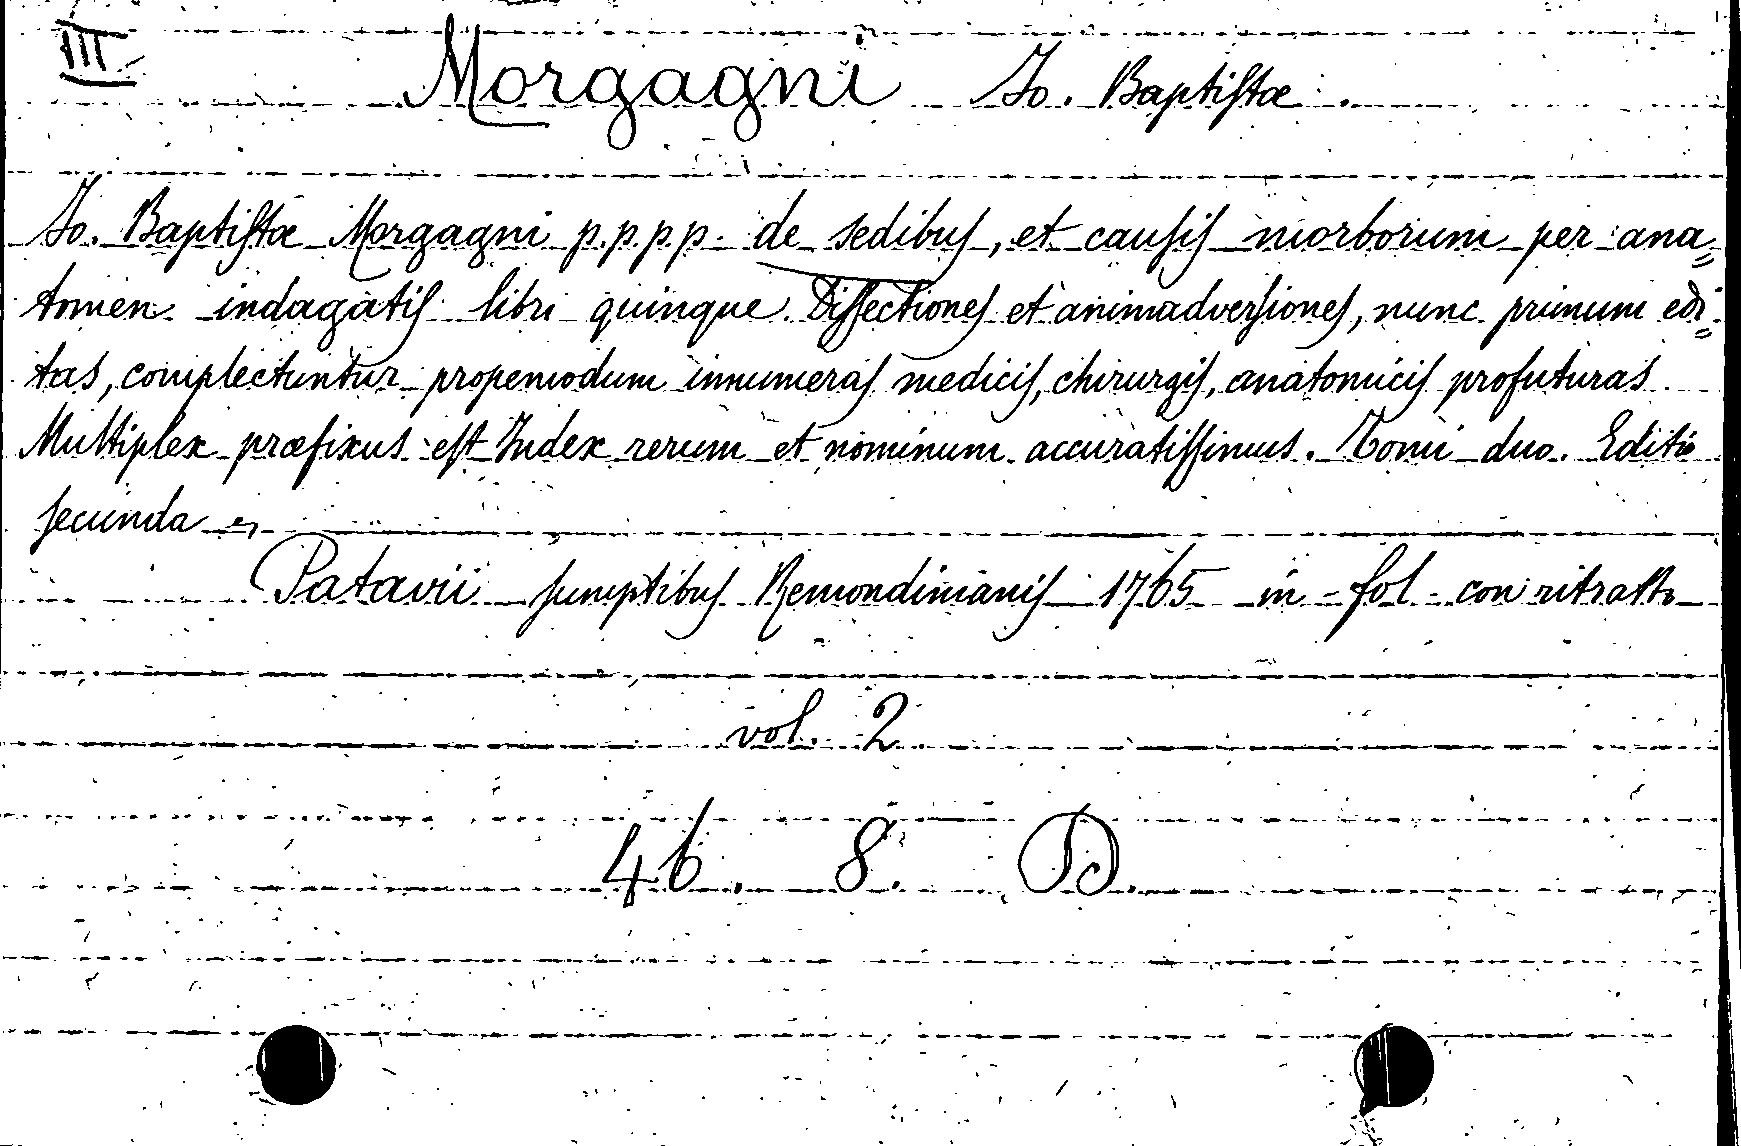 III
Morgagni Jo. Baptiſtæ.
Jo. Baptiſtæ Morgagni p.p.p.p. de sedibuſ, et cauſiſ morborum per ana=
tomen indagatiſ libri quinque. Diſſectioneſ et animadverſioneſ, nunc primum edi=
tas, complectuntur propemodum innumeraſ mediciſ, chirurgiſ, anatomiciſ profuturas
Multiplex præfixus eſt Index rerum et nominum accuratiſſimus. Tomi duo. Editio
ſecunda
Patavii ſumptibuſ Remondinianiſ 1765 in-fol. con ritratto
vol. 2
46. 8. D.